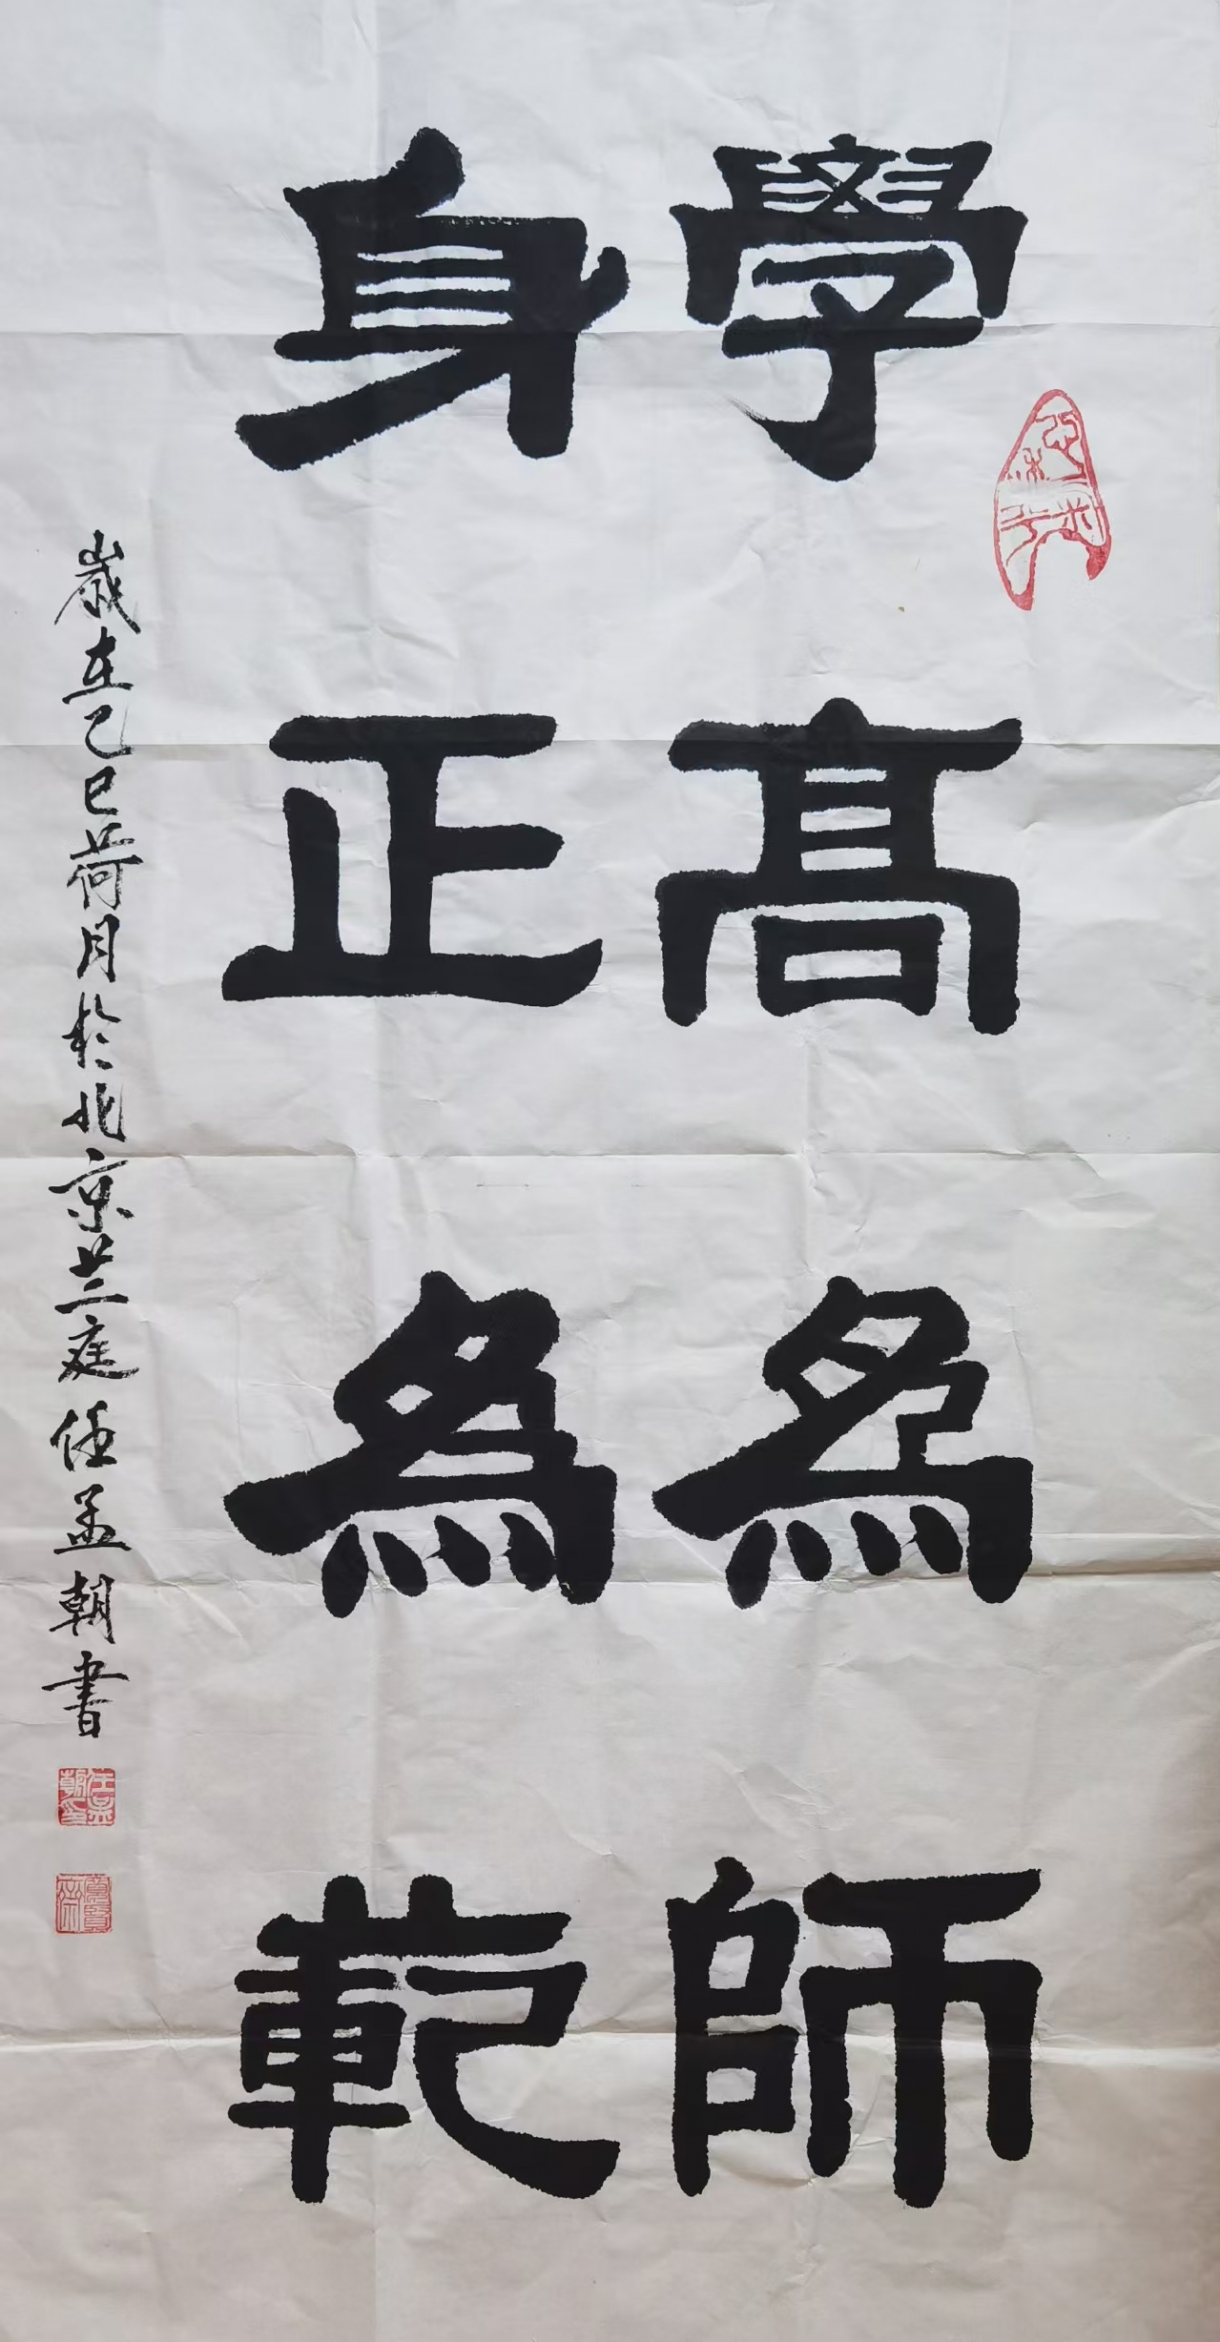 學高為師
身正為範
歲在乙巳荷月於北京芸庭任孟朝書
任孟朝印